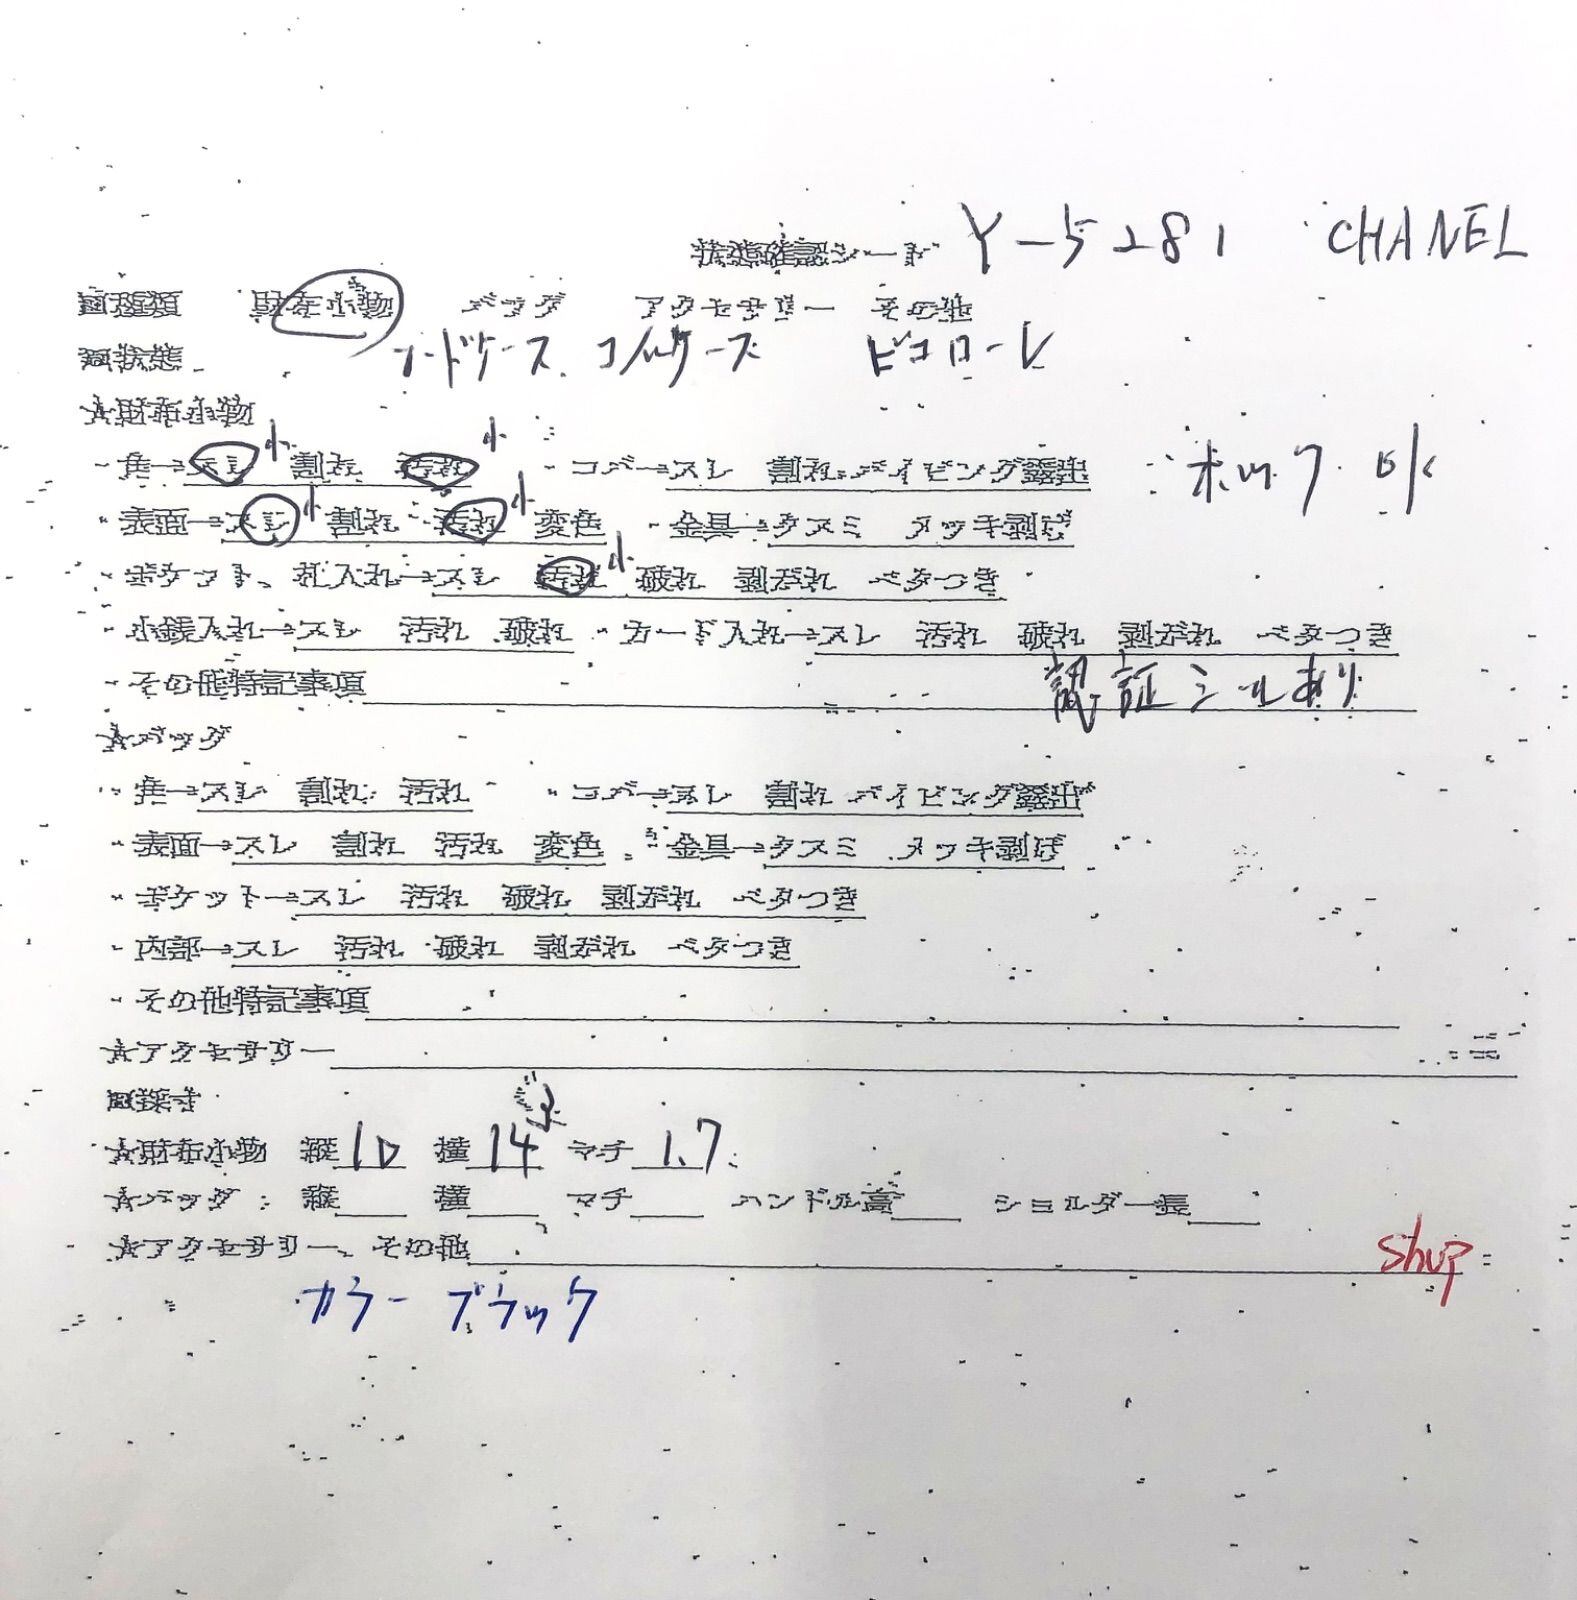 状態確認シート Y-5281 CHANEL
□種類 財布小物 バッグ アクセサリー その他
□状態 カードケース コインケース ビコローレ
★財布小物
・角→スレ小 割れ 汚れ小 ・コバ→スレ 割れ パイピング露出 ホック OK
・表面→スレ小 割れ 汚れ小 変色 ・金具→クスミ メッキ剥げ
・ポケット、札入れ→スレ 汚れ小 破れ 剥がれ ベタつき
・小銭入れ→スレ 汚れ 破れ ・カード入れ→スレ 汚れ 破れ 剥がれ ベタつき
・その他特記事項 認証シールあり
★バッグ
・角→スレ 割れ 汚れ ・コバ→スレ 割れ パイピング露出
・表面→スレ 割れ 汚れ 変色 ・金具→クスミ メッキ剥げ
・ポケット→スレ 汚れ 破れ 剥がれ ベタつき
・内部→スレ 汚れ 破れ 剥がれ ベタつき
・その他特記事項
★アクセサリー
□採寸
★財布小物 縦10 横14 マチ1.7
★バッグ 縦 横 マチ ハンドル高 ショルダー長
★アクセサリー、その他 shop
カラー ブラック